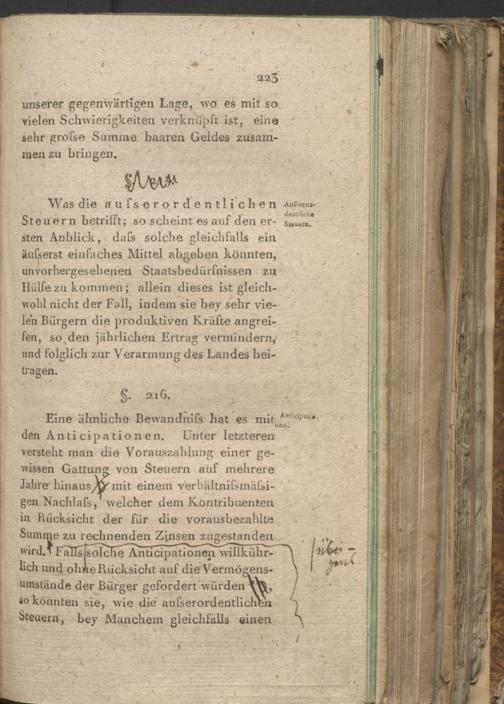 223
unserer gegenwärtigen Lage, wo es mit so
vielen Schwierigkeiten verknüpft ist, eine
sehr groſse Summe baaren Geldes zusam-
men zu bringen.
Was die auſserordentlichen
Steuern betrifft; so scheint es auf den er-
sten Anblick, daſs solche gleichfalls ein
äuſserst einfaches Mittel abgeben könnten,
unvorhergesehenen Staatsbedürfnissen zu
Hülfe zu kommen; allein dieses ist gleich-
wohl nicht der Fall, indem sie bey sehr vie-
len Bürgern die produktiven Kräfte angrei-
fen, so den jährlichen Ertrag vermindern,
und folglich zur Verarmung des Landes bei-
tragen.
Steuern.
§. 216.
Eine ähnliche Bewandniſs hat es mit
den Anticipationen. Unter letzteren
versteht man die Vorauszahlung einer ge-
wissen Gattung von Steuern auf mehrere
Jahre hinaus mit einem verhältniſsmäſsi-
gen Nachlaſs, welcher dem Kontribuenten
in Rücksicht der für die vorausbezahlte
Summe zu rechnenden Zinsen zugestanden
wird. Falls solche Anticipationen willkühr-
lich und ohne Rücksicht auf die Vermögens-
umstände der Bürger gefordert würden,
so könnten sie, wie die auſserordentlichen
Steuern, bey Manchem gleichfalls einen
übri-
gens